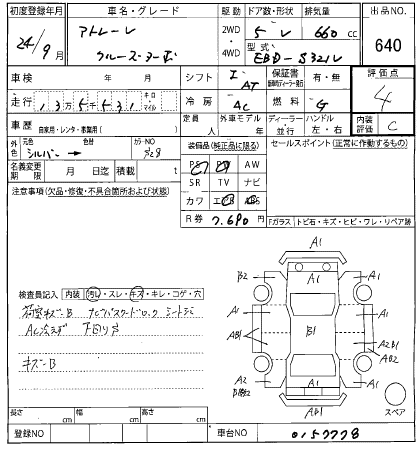 初度登録年月 車名・グレード 駆動 ドア数・形状 排気量 出品NO.
24/9月 アトレーレ 2WD 5 V 660 cc 640
クルーズターボ 4WD 型式 EBD-S321V
車検 年 月 シフト AT 保証書 有・無 評価点
走行 13万5千531 キロ マイル 冷房 AC 燃料 G 4
定員 人 外車モデル 年 ディーラー・並行 ハンドル 左・右 内装評価 C
車歴 自家用・レンタ・事業用( )
元色 シルバー → 色替 カラーNO S28 装備品(純正品に限る) セールスポイント(正常に作動するもの)
PS PW AW
名義変更期限 月 日迄 積載 t SR TV ナビ
注意事項(欠品・修復・不具合箇所および状態) カワ エアB ABS
R券 7,690 Fガラス トビ石・キズ・ヒビ・ワレ・リペア跡
A1
B2 A1
検査員記入 内装 汚レ・スレ・キズ・キレ・コゲ・穴
荷室キズB ナビパスワードロック シートシミ A1 A1
AC冷えず 下回りサ AB1 B1 A2B1
キズB A2 A1 A2
AB1 スペア
長さ cm 幅 cm 高さ cm
登録NO 車台NO 0157778